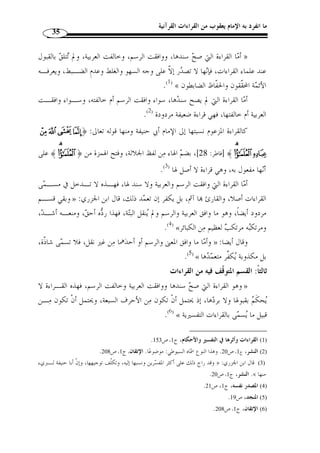 ما انفرد به الإمام يعقوب من القراءات القرآنية
35
« أمّا القراءة التي صحّ سندها، ووافقت الرسم، وخالفت العربية، ولم تُتلقَّ بالقبول
عند علماء القراءات، فإنّها لا تصدُر إلاّ على وجه السهو والغلط وعدم الضبط، ويعرفه
الأئمّة المحقّقون والحفّاظ الضابطون » (1).
أمّا القراءة التي لم يصح سندُها، سواء وافقت الرسم أم خالفته، وسواء وافقت
العربية أم خالفتها، فهي قراءة ضعيفة مردودة (2)
كالقراءة المزعوم نسبتها إلى الإمام أبي حنيفة ومنها قوله تعالى: ﴿ إِنَّمَا يَخْشَى ٱللَّهَ مِنْ
عِبَادِهِ ٱلْعُلَمَٰٓؤُا۟ ﴾ [فاطر: 28]، بضمّ الهاء مِن لفظ الجلالة، وفتح الهمزة من ﴿ ٱلْعُلَمَٰٓؤُا۟ ﴾ على
أنّها مفعول به، وهي قراءة لا أصل لها (3).
أمّا القراءة التي وافقت الرسم والعربية ولا سند لها، فهذه لا تدخل في مسمّى
القراءات أصلا، والقارئ بها آثم، بل يكفر إن تعمّد ذلك، قال ابن الجزري: «وبقي قسم
مردود أيضاً، وهو ما وافق العربية والرسم و لم يُنقل البتّة، فهذا ردُّه أحقّ، ومنعه أشدّ،
ومرتكبُه مرتكبٌ لعظيمٍ مِن الكبائر» (4).
وقال أيضا: « وأمّا ما وافق المعنى والرسم أو أحدَهما مِن غير نقل، فلا تسمّى شاذّة،
بل مكذوبة يُكفَّر متعمّدُها » (5)
ثالثا: القسم المتوقَّف فيه من القراءات
«وهو القراءة التي صحّ سندها ووافقت العربية وخالفت الرسم، فهذه القراءة لا
يُحكَمُ بقبولها ولا بردّها، إذ يحتمل أنْ تكون مِن الأحرف السبعة، ويحتمل أنْ تكون مِن
قبيل ما يُسمّى بالقراءات التفسيرية » (6)
(1) القراءات وأثرها في التفسير والأحكام، ج1، ص153.
(2) النشر، ج1، ص20. وهذا النوع سمّاه السيوطي: موضوعًا. الإتقان، ج1، ص208.
(3) قال ابن الجزري: « وقد راج ذلك على أكثر المفسّرين ونسبها إليه، وتكلّف توجيهها، وإنّ أبا حنيفة لبريء
منها ». النشر، ج1، ص20.
(4) المصدر نفسه، ج1، ص21.
(5) المنجد، ص19.
(6) الإتقان، ج1، ص208.